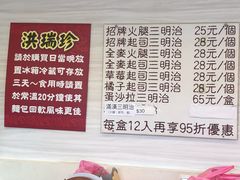 洪瑞珍
請於購買日當晚放
置冰箱冷藏可存放
三天～食用時請置
於常溫20分鐘使其
麵包回軟風味更佳
招牌火腿三明治 25元/個
招牌起司三明治 28元/個
全麥火腿三明治 25元/個
全麥起司三明治 28元/個
草莓起司三明治 28元/個
橘子起司三明治 28元/個
蛋沙拉三明治 65元/盒
滿漢三明治
$30
每盒12入再享95折優惠